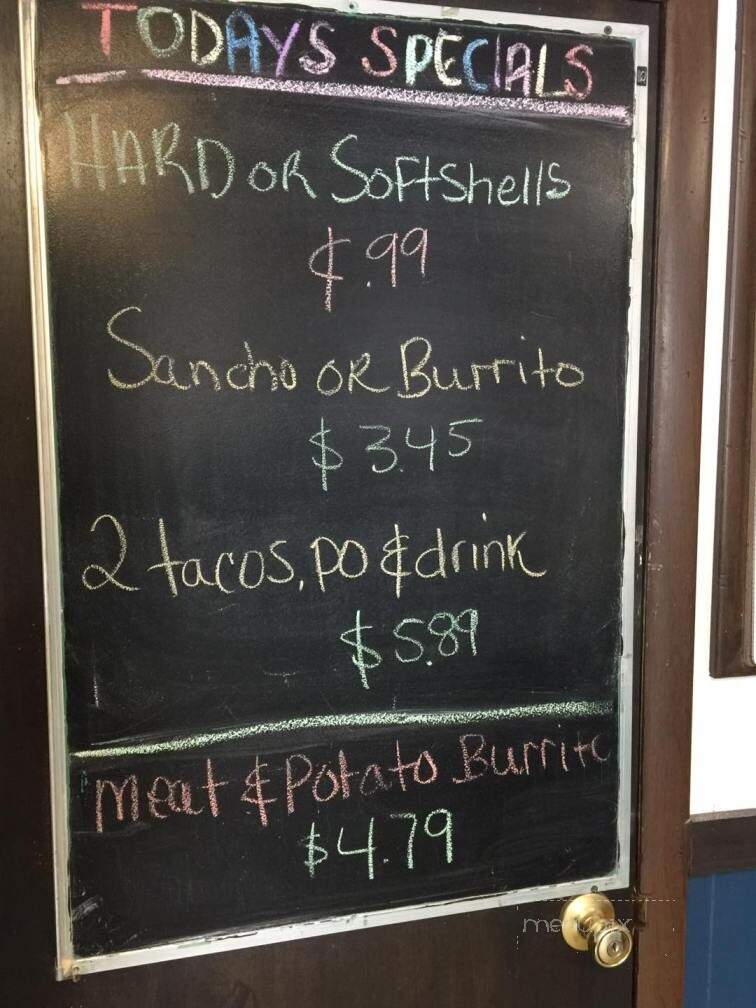 TODAYS SPECIALS
HARD OR Softshells
¢.99
Sancho OR Burrito
$3.45
2 tacos, po & drink
$5.89
Meat & Potato Burrito
$4.79
menupix